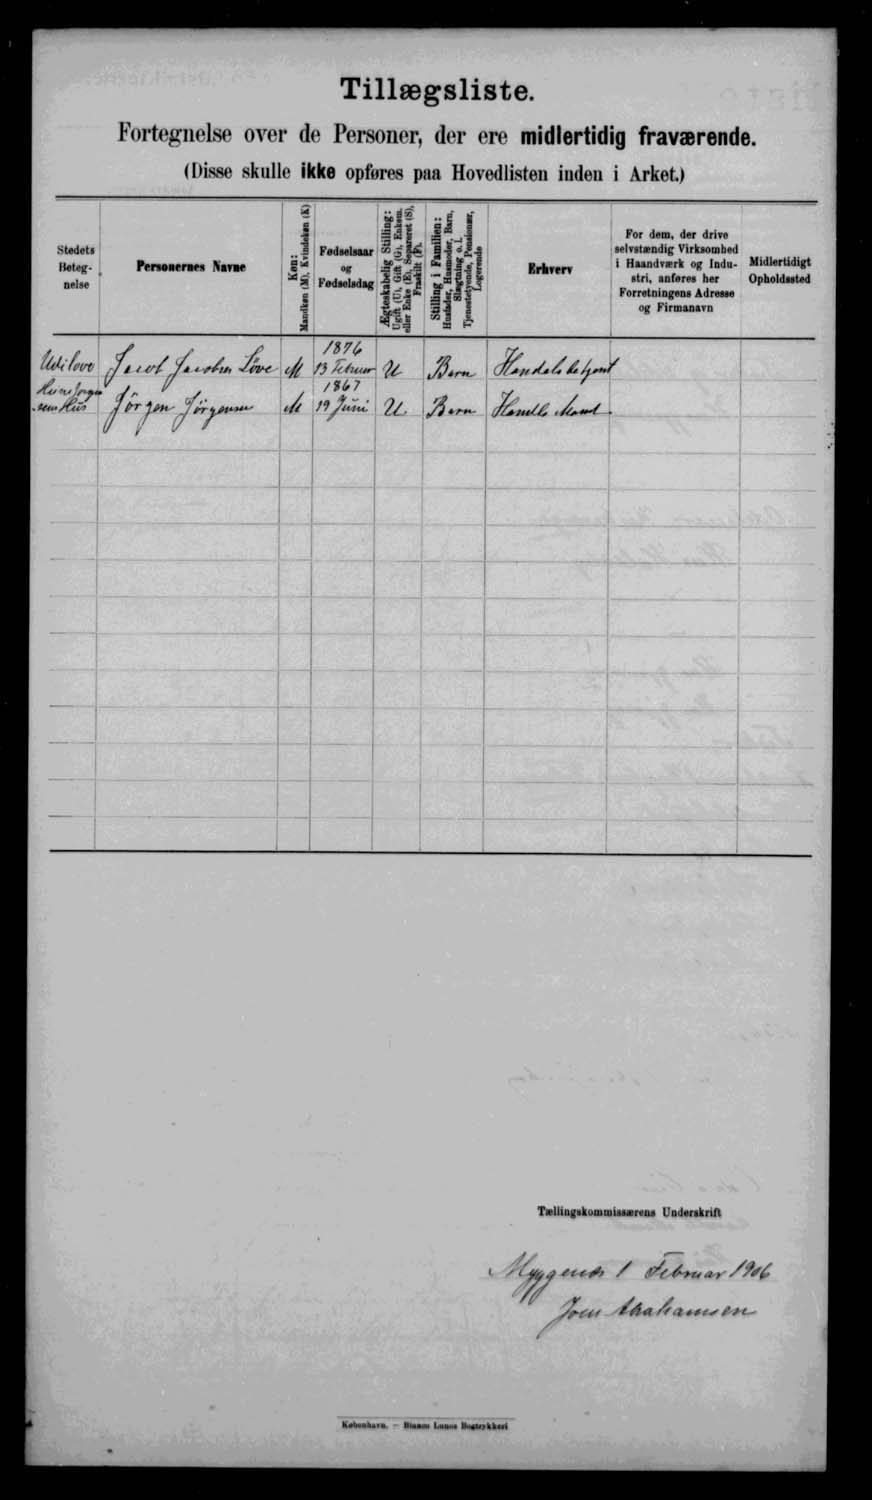 Tillægsliste.
Fortegnelse over de Personer, der ere midlertidig fraværende.
(Disse skulle ikke opføres paa Hovedlisten inden i Arket.)
Stedets
Beteg-
nelse
Personernes Navne
Køn:
Mandkøn (M), Kvindekøn (K)
Fødselsaar
og
Fødselsdag
Ægteskabelig Stilling:
Ugift (U), Gift (G), Enkem.
eller Enke (E), Separeret (S),
Fraskilt (F).
Stilling i Familien:
Husfader, Husmoder, Barn,
Slægtning o. l.
Tjenestetyende, Pensionær,
Logerende
Erhverv
For dem, der drive
selvstændig Virksomhed
i Haandværk og Indu-
stri, anføres her
Forretningens Adresse
og Firmanavn
Midlertidigt
Opholdssted
1876
Jacob Jacobsen Løve M 13 Februar U Barn Handelsbetjent
1867
Hus Jørgen Jørgensen M 19 Juni U. Barn
Tællingskommissærens Underskrift
Myggenæs 1 Februar 1906
Joen Abrahamsen
København. — Bianco Lunos Bogtrykkeri